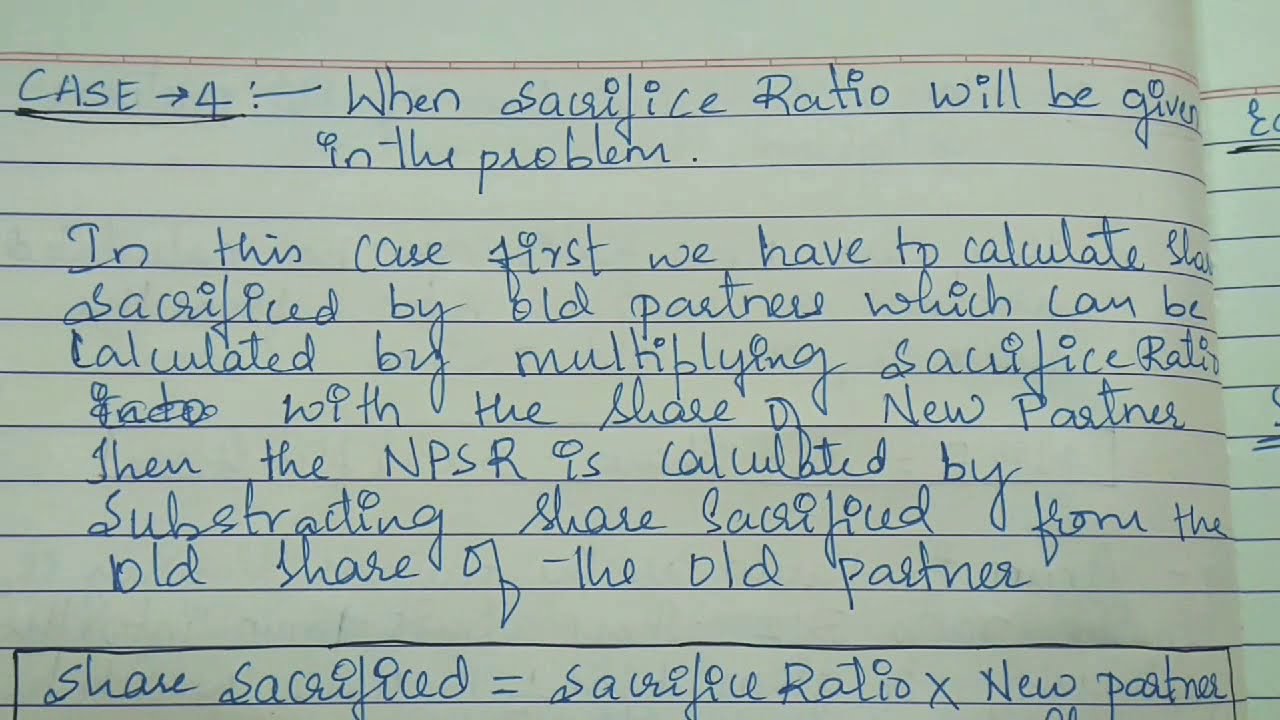 CASE → 4 :— When Sacrifice Ratio will be given
in the problem.
In this case first we have to calculate
Sacrificed by old partners which can be
calculated by multiplying sacrifice Ratio
with the share of New Partner
Then the NPSR is calculated by
Substracting share sacrificed from the
old share of the old partner
Share Sacrificed = Sacrifice Ratio X New partner